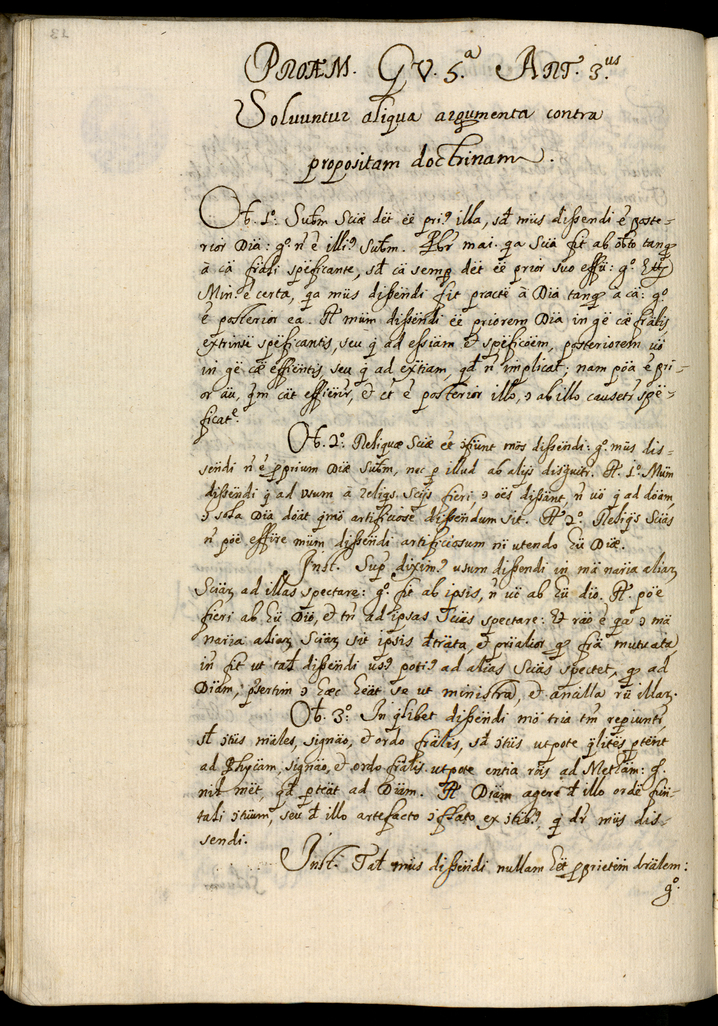 PROÆM. QV. 5.ª ART. 3.us
Soluuntur aliqua argumenta contra
propositam doctrinam.
Ob. 1º: Subm Sciæ dēt ēē pri9 illa, sd mūs disse͞ndi ē poste-
rior Diā: gº. n̄ ē illi9 Subm. Pbr mai. qa Sciā fit ab obto tanq
à cā frali speficante, sd cā semp dēt ēē prior suo effū: gº.
Min. ē certa, qa mūs disse͞ndi fit practe à Diā tanq à cā: gº
ē posterior ea. R mūm disse͞ndi ēē priorem Diā in gē cæ frālis
extrinsē spēficantis, seu q ad essiam & spēficoēm, posteriorem uō
in gē cæ effiēntis, seu q ad extiam, qd n̄ implicat; nam pōa ē pri-
or āu, qm cāt effiēnr, & ēt ē posterior illo, ɔ ab illo causetr spē-
ficate.
Ob. 2º. Reliquæ Sciæ ēē ɔfiunt mōs disse͞ndi: gº. mūs dis-
sēndi n̄ ē pprium Diæ Subm, nec p illud ab alijs distguitr. R. 1º. Mūm
disse͞ndi q ad usum à reliqs. Scijs fieri ɔ oēs dissānt, n̄ uō q ad doām,
ɔ sola Diā doāt qmō artificiosē disse͞ndum sit. R 2º. Reliqs Sciās
n̄ pōē effire mūm disse͞ndi artificiosum nī utendo hū Diæ.
Inst. Sup dixim9 usum disse͞ndi in mā naria aliar
Sciar ad illas spectare: gº. fit ab ipsis, n̄ uō ab hū dio. R. pōe
fieri ab hū Dio, & tn ad ipsas Sciās spectare: Et rāo ē qa ɔ mā
naria aliar Sciar sit ipsis dtrāta, & prialior q frā mutuata,
in fit ut tal disse͞ndi us9 poti9 ad alias Sciās spectet, q ad
Diām, psertim ɔ hæc hēāt se ut ministra, & ancilla rū illar.
Ob. 3º. In qlibet disse͞ndi mō tria tm repiuntr,
sl ɔtiūs māles, signāo, & ordo frālis, sd ɔtiūs utpote qlitēs ptēnt
ad Phycam, signāo, & ordo frālis utpote entia rōis ad Metam: gº.
nil mēt, qd ptēāt ad Diām. R Diām agere d illo ordē fūn-
tali ɔtiūm, seu d illo artefacto ɔflato ex ɔtib9, q dr mūs dis-
sendi.
Inst. Tal mūs disse͞ndi nullam hēt pprietēm drālem:
gº.